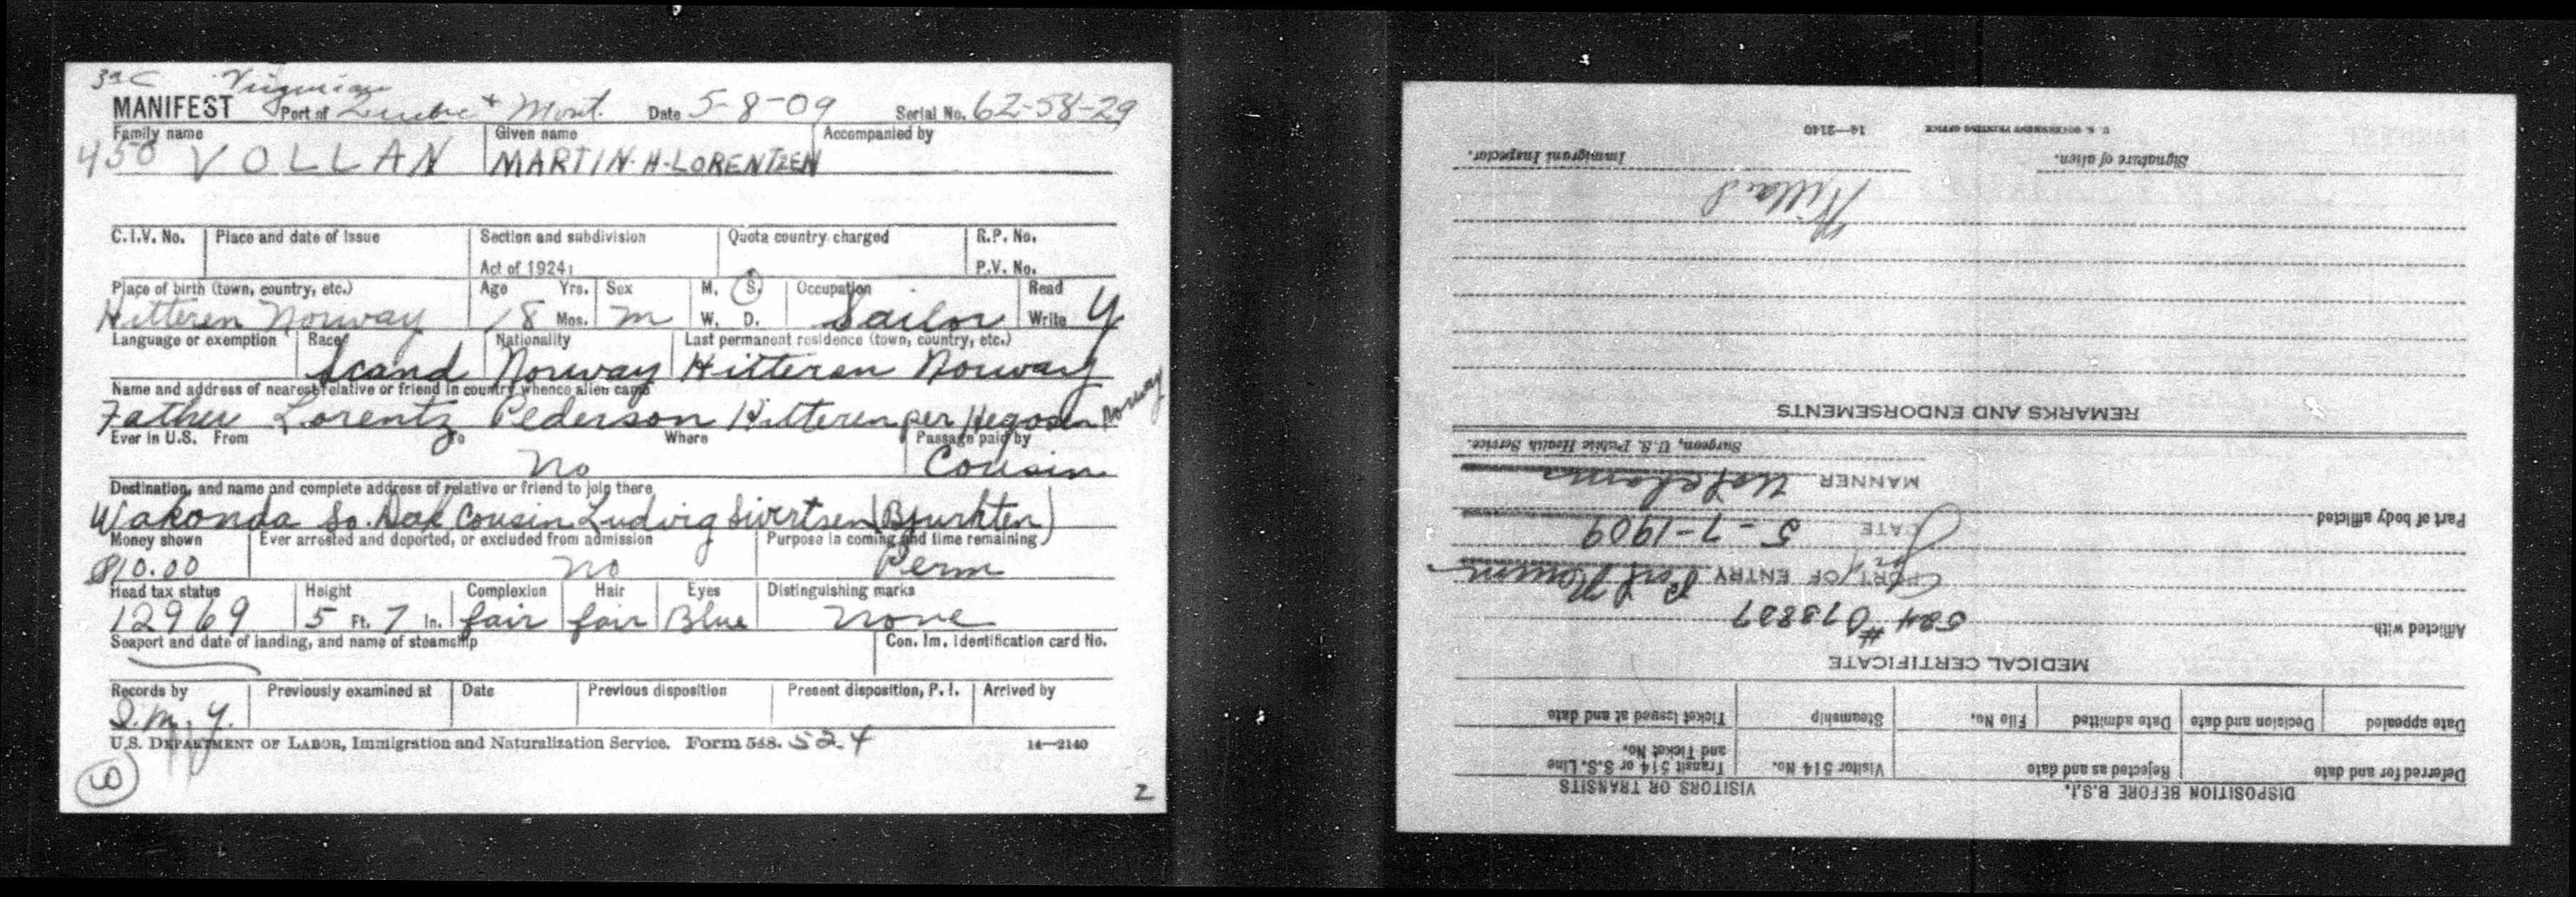 3rd C Virginian
MANIFEST Port of Quebec + Mont. Date 5-8-09 Serial No. 62-58-29
Family name Given name Accompanied by
450 VOLLAN MARTIN-H-LORENTZEN
C.I.V. No. Place and date of issue Section and subdivision Quota country charged R.P. No.
Act of 1924: P.V. No.
Place of birth (town, country, etc.) Age Yrs. Sex M. S. Occupation Read
Hitteren Norway 18 Mos. M W. D. Sailor Write Y
Language or exemption Race Nationality Last permanent residence (town, country, etc.)
Scand Norway Hitteren Norway
Name and address of nearest relative or friend in country whence alien came
Father Lorentz Pederson Hitteren per Hegosen Norway
Ever in U.S. From To Where Passage paid by
No Cousin
Destination, and name and complete address of relative or friend to join there
Wakonda So. Dak Cousin Ludvig Sivertsen (Bjurkten)
Money shown Ever arrested and deported, or excluded from admission Purpose in coming and time remaining
$10.00 no Perm
Head tax status Height Complexion Hair Eyes Distinguishing marks
12969 5 Ft. 7 In. fair fair Blue none
Seaport and date of landing, and name of steamship Con. Im. Identification card No.
Records by Previously examined at Date Previous disposition Present disposition, P. I. Arrived by
U.S. DEPARTMENT OF LABOR, Immigration and Naturalization Service. Form 548. 524 14—2140
2
DISPOSITION BEFORE B.S.I. VISITORS OR TRANSITS
Deferred for and date Rejected as and date Visitor 514 No. Transit 514 or S.S. Line and Ticket No.
Date appealed Decision and date Date admitted File No. Steamship Ticket issued at and date
MEDICAL CERTIFICATE
Afflicted with 524 # 073837
PORT OF ENTRY Port Huron
DATE 5-7-1909
Part of body afflicted
MANNER
Surgeon, U.S. Public Health Service.
REMARKS AND ENDORSEMENTS
Signature of alien. Immigrant Inspector.
U. S. GOVERNMENT PRINTING OFFICE 14—2140